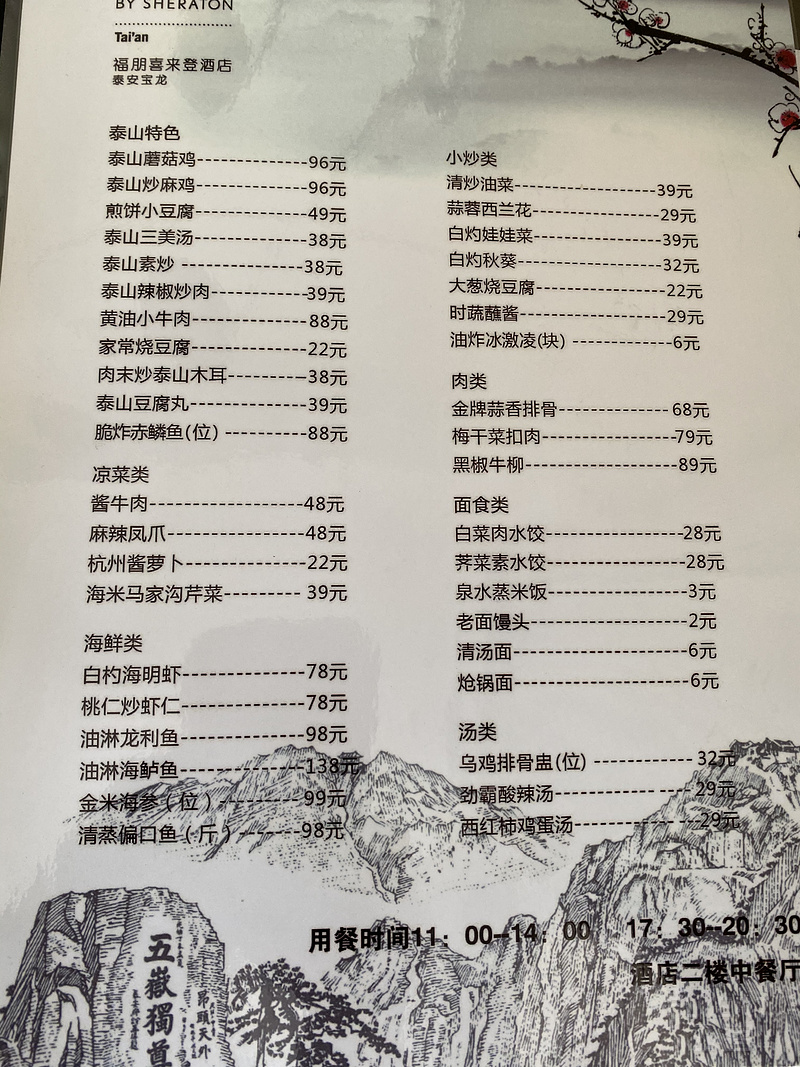 BY SHERATON
Tai'an
福朋喜来登酒店
泰安宝龙
泰山特色
泰山蘑菇鸡------------96元
泰山炒麻鸡------------96元
煎饼小豆腐------------49元
泰山三美汤------------38元
泰山素炒 ------------38元
泰山辣椒炒肉----------39元
黄油小牛肉------------88元
家常烧豆腐------------22元
肉末炒泰山木耳--------38元
泰山豆腐丸------------39元
脆炸赤鳞鱼(位) --------88元
凉菜类
酱牛肉----------------48元
麻辣凤爪--------------48元
杭州酱萝卜------------22元
海米马家沟芹菜-------- 39元
海鲜类
白灼海明虾------------78元
桃仁炒虾仁------------78元
油淋龙利鱼------------98元
油淋海鲈鱼------------138元
金米海参（位）--------99元
清蒸偏口鱼（斤）------98元
小炒类
清炒油菜--------------39元
蒜蓉西兰花------------29元
白灼娃娃菜------------39元
白灼秋葵--------------32元
大葱烧豆腐------------22元
时蔬蘸酱--------------29元
油炸冰激凌(块) --------6元
肉类
金牌蒜香排骨---------- 68元
梅干菜扣肉------------79元
黑椒牛柳--------------89元
面食类
白菜肉水饺------------28元
荠菜素水饺------------28元
泉水蒸米饭------------3元
老面馒头--------------2元
清汤面----------------6元
炝锅面----------------6元
汤类
乌鸡排骨盅(位) --------32元
劲霸酸辣汤------------29元
西红柿鸡蛋汤----------29元
用餐时间11：00--14：00 17：30--20：30
酒店二楼中餐厅
五嶽獨尊
昂頭天外